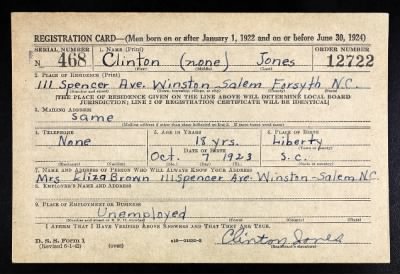 REGISTRATION CARD—(Men born on or after January 1, 1922 and on or before June 30, 1924)
SERIAL NUMBER 1. NAME (Print) ORDER NUMBER
N 468 Clinton (none) Jones 12722
(First) (Middle) (Last)
2. PLACE OF RESIDENCE (Print)
111 Spencer Ave. Winston-Salem Forsyth N.C.
(Number and street) (Town, township, village, or city) (County) (State)
[THE PLACE OF RESIDENCE GIVEN ON THE LINE ABOVE WILL DETERMINE LOCAL BOARD
JURISDICTION; LINE 2 OF REGISTRATION CERTIFICATE WILL BE IDENTICAL]
3. MAILING ADDRESS
Same
[Mailing address if other than place indicated on line 2. If same insert word same]
4. TELEPHONE 5. AGE IN YEARS 6. PLACE OF BIRTH
None 18 yrs. Liberty
DATE OF BIRTH (Town or county)
Oct. 7 1923 S.C.
(Exchange) (Number) (Mo.) (Day) (Yr.) (State or country)
7. NAME AND ADDRESS OF PERSON WHO WILL ALWAYS KNOW YOUR ADDRESS
Mrs. Eliza Brown 111 Spencer Ave. Winston-Salem N.C.
8. EMPLOYER'S NAME AND ADDRESS
9. PLACE OF EMPLOYMENT OR BUSINESS
Unemployed
(Number and street or R. F. D. number) (Town) (County) (State)
I AFFIRM THAT I HAVE VERIFIED ABOVE ANSWERS AND THAT THEY ARE TRUE.
D. S. S. Form 1
(Revised 6-1-42) (over)
Clinton Jones
(Registrant's signature)